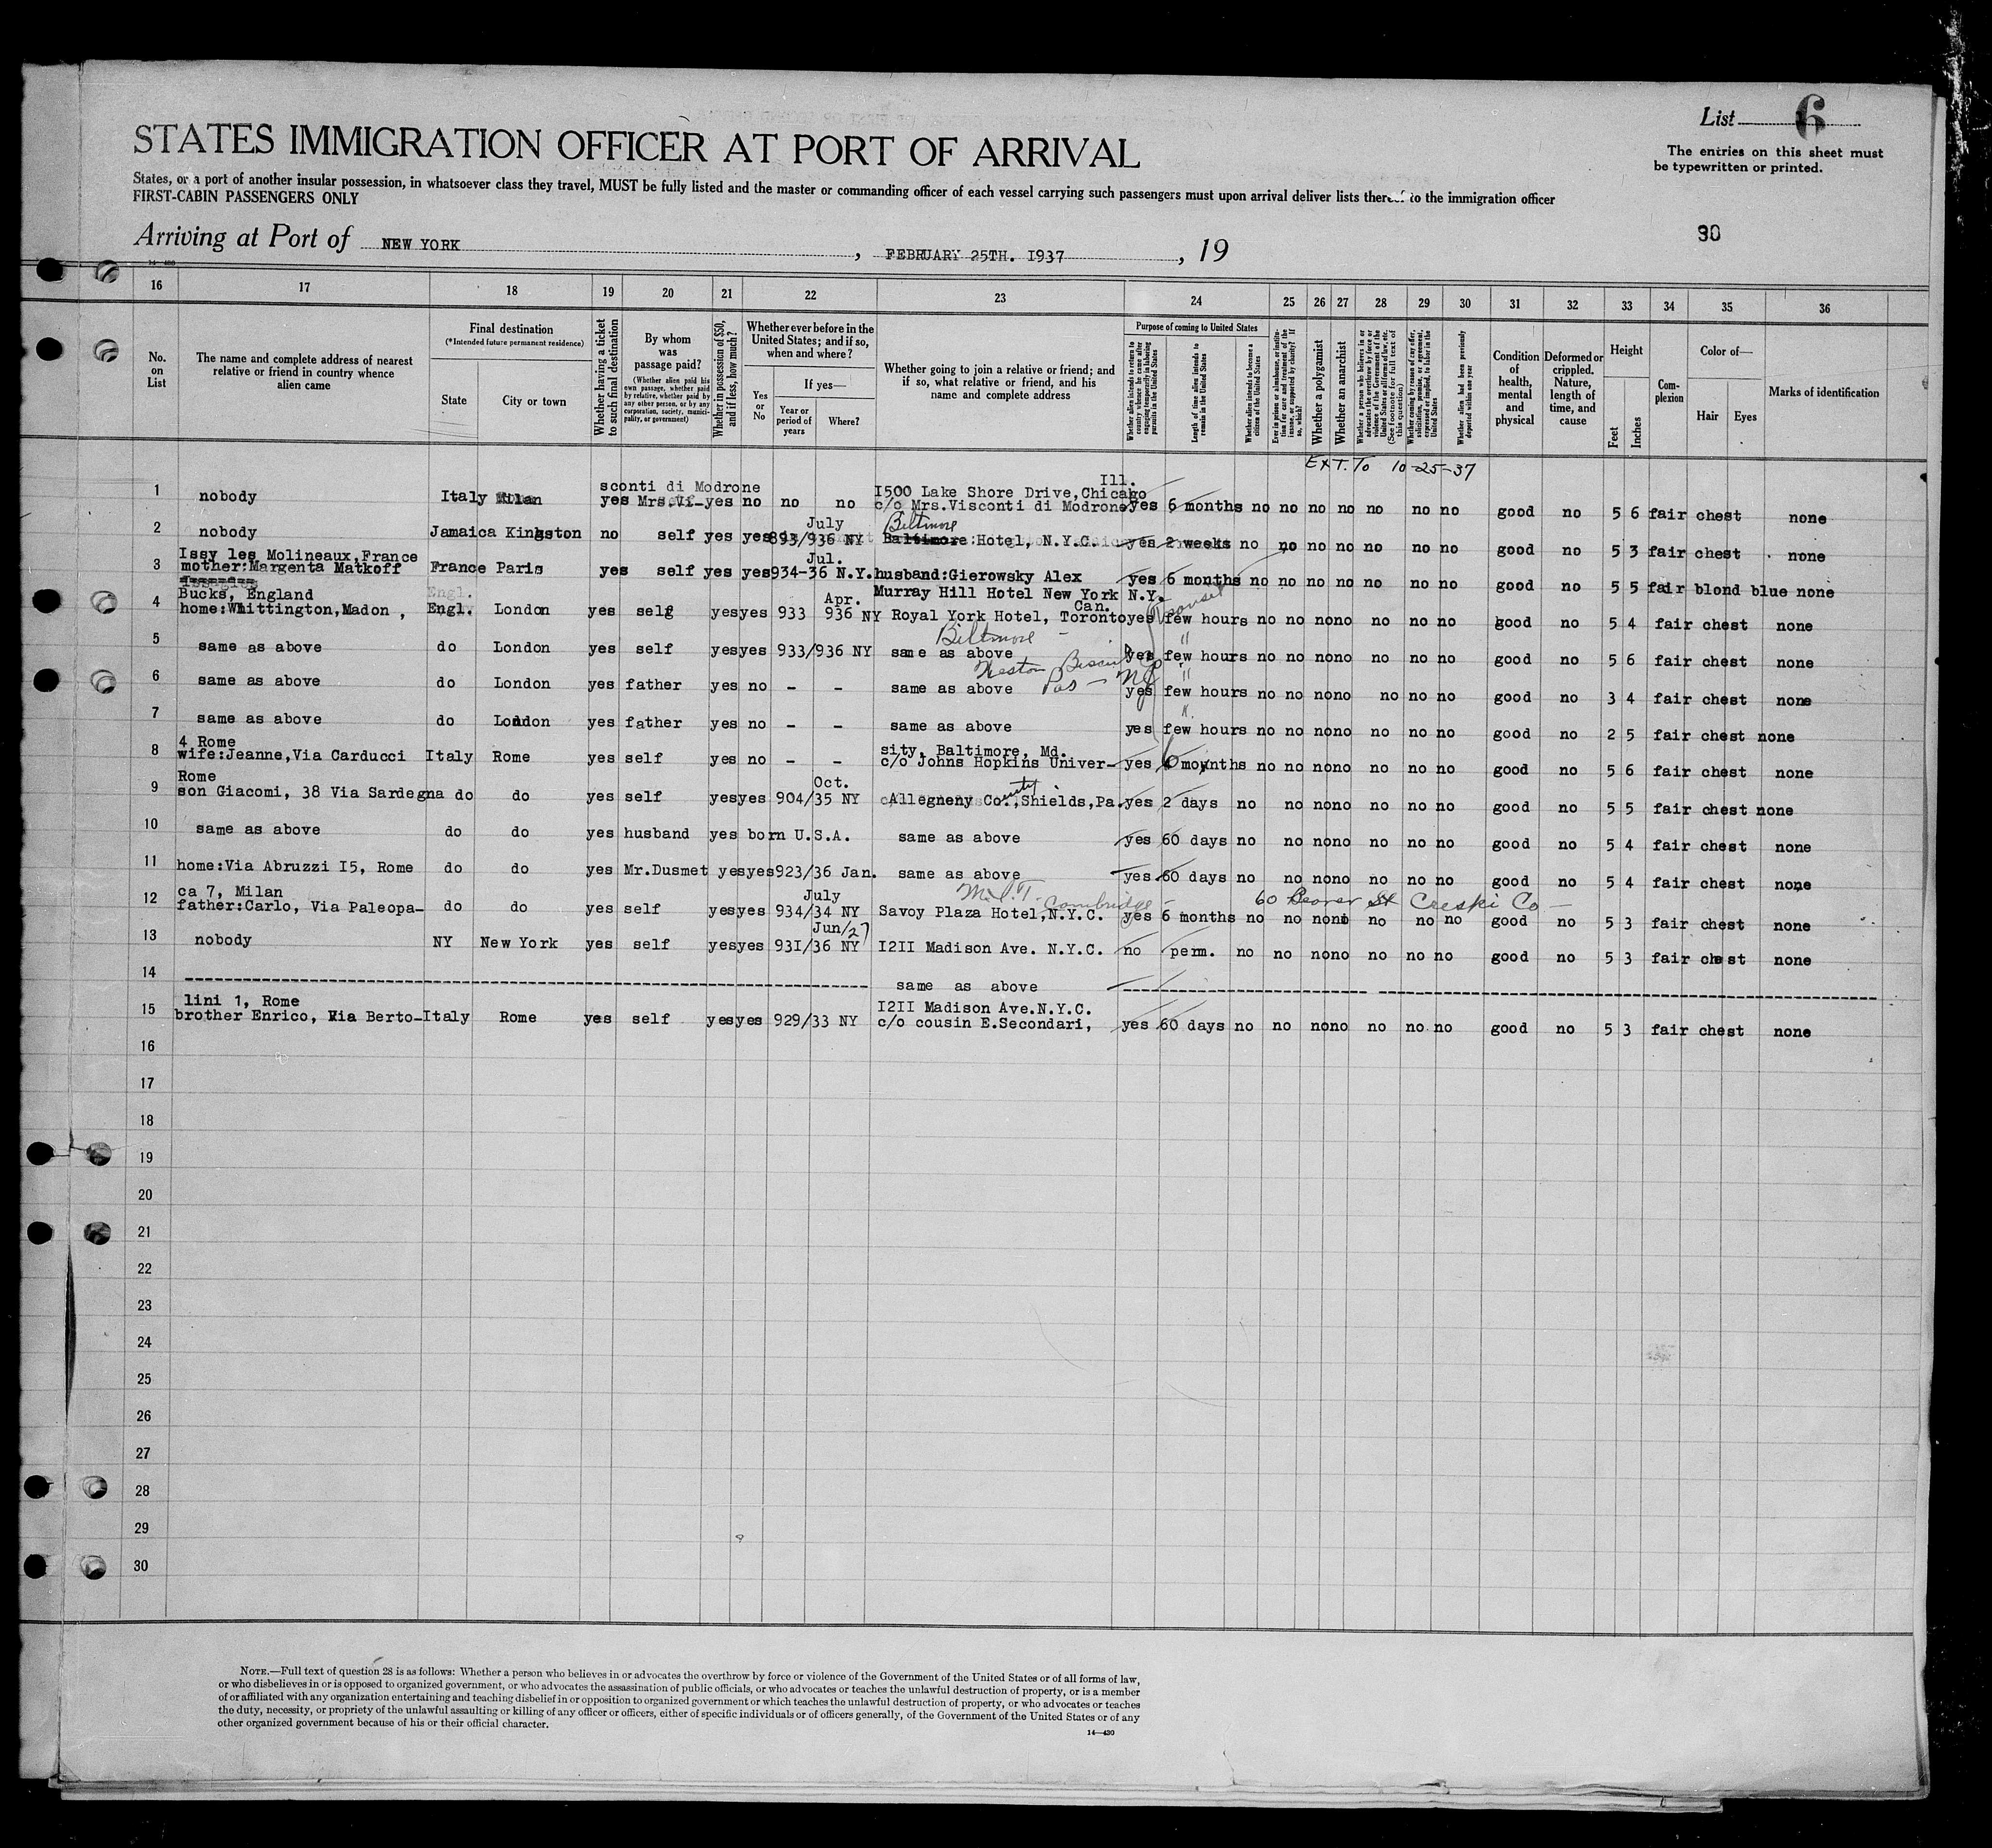 List 6
The entries on this sheet must
be typewritten or printed.
STATES IMMIGRATION OFFICER AT PORT OF ARRIVAL
States, or a port of another insular possession, in whatsoever class they travel, MUST be fully listed and the master or commanding officer of each vessel carrying such passengers must upon arrival deliver lists thereof to the immigration officer
FIRST-CABIN PASSENGERS ONLY
Arriving at Port of NEW YORK, FEBRUARY 25TH. 1937, 19
30
16 17 18 19 20 21 22 23 24 25 26 27 28 29 30 31 32 33 34 35 36
No. on List
The name and complete address of nearest relative or friend in country whence alien came
Final destination
(*Intended future permanent residence)
State
City or town
Whether having a ticket to such final destination
By whom was passage paid?
(Whether alien paid his own passage, whether paid by relative, whether paid by any other person, or by any corporation, society, municipality, or government)
Whether in possession of $50, and if less, how much?
Whether ever before in the United States; and if so, when and where?
Yes or No
If yes—
Year or period of years
Where?
Whether going to join a relative or friend; and if so, what relative or friend, and his name and complete address
Purpose of coming to United States
Whether alien intends to return to country whence he came after engaging temporarily in laboring pursuits in the United States
Length of time alien intends to remain in the United States
Whether alien intends to become a citizen of the United States
Ever in prison or almshouse, or institution for care and treatment of the insane, or supported by charity? If so, which?
Whether a polygamist
Whether an anarchist
Whether a person who believes in or advocates the overthrow by force or violence of the Government of the United States or all forms of law, etc. (See footnote for full text of this question)
Whether coming by reason of any offer, solicitation, promise, or agreement, expressed or implied, to labor in the United States
Whether alien had been previously deported within one year
Condition of health, mental and physical
Deformed or crippled. Nature, length of time, and cause
Height
Feet
Inches
Complexion
Color of—
Hair
Eyes
Marks of identification
EXT. To 10-25-37
sconti di Modrone Ill.
1500 Lake Shore Drive, Chicago
1 nobody Italy Milan yes Mrs.Vi- yes no no no c/o Mrs.Visconti di Modrone yes 6 months no no no no no no no good no 5 6 fair chest none
July Biltmore
2 nobody Jamaica Kingston no self yes yes 893/936 NY Hotel, N.Y.C. yes 2 weeks no no no no no no no good no 5 3 fair chest none
Issy les Molineaux,France Jul.
3 mother:Margenta Matkoff France Paris yes self yes yes 934-36 N.Y. husband:Gierowsky Alex yes 6 months no no no no no no no good no 5 5 fair blond blue none
Murray Hill Hotel New York N.Y.
Bucks, England Engl. Apr. Can. Transit
4 home:Whittington,Madon , Engl. London yes self yes yes 933 936 NY Royal York Hotel, Toronto yes few hours no no no no no no no good no 5 4 fair chest none
Biltmore "
5 same as above do London yes self yes yes 933/936 NY same as above yes few hours no no no no no no no good no 5 6 fair chest none
Weston Biscuit Co
Pas — NJ "
6 same as above do London yes father yes no - - same as above yes few hours no no no no no no no good no 3 4 fair chest none
"
7 same as above do London yes father yes no - - same as above yes few hours no no no no no no no good no 2 5 fair chest none
4 Rome sity, Baltimore, Md.
8 wife:Jeanne,Via Carducci Italy Rome yes self yes no - - c/o Johns Hopkins Univer- yes 6 months no no no no no no no good no 5 6 fair chest none
Rome Oct.
9 son Giacomi, 38 Via Sardegna do do yes self yes yes 904/35 NY Allegheny Co.,Shields,Pa. yes 2 days no no no no no no no good no 5 5 fair chest none
unty
10 same as above do do yes husband yes born U.S.A. same as above yes 60 days no no no no no no no good no 5 4 fair chest none
11 home:Via Abruzzi I5, Rome do do yes Mr.Dusmet yes yes 923/36 Jan. same as above yes 60 days no no no no no no no good no 5 4 fair chest none
ca 7, Milan July M.I.T. Cambridge - 60 Beaver St Crespi Co —
12 father:Carlo, Via Paleopa- do do yes self yes yes 934/34 NY Savoy Plaza Hotel,N.Y.C. yes 6 months no no no no no no no good no 5 3 fair chest none
Jun/27
13 nobody NY New York yes self yes yes 931/36 NY I2II Madison Ave. N.Y.C. no perm. no no no no no no no good no 5 3 fair chest none
14 same as above
lini 1, Rome I2II Madison Ave.N.Y.C.
15 brother Enrico, Via Berto- Italy Rome yes self yes yes 929/33 NY c/o cousin E.Secondari, yes 60 days no no no no no no no good no 5 3 fair chest none
16
17
18
19
20
21
22
23
24
25
26
27
28
29
30
NOTE.—Full text of question 28 is as follows: Whether a person who believes in or advocates the overthrow by force or violence of the Government of the United States or of all forms of law,
or who disbelieves in or is opposed to organized government, or who advocates the assassination of public officials, or who advocates or teaches the unlawful destruction of property, or is a member
of or affiliated with any organization entertaining and teaching disbelief in or opposition to organized government or which teaches the unlawful destruction of property, or who advocates or teaches
the duty, necessity, or propriety of the unlawful assaulting or killing of any officer or officers, either of specific individuals or of officers generally, of the Government of the United States or of any
other organized government because of his or their official character.
14—430